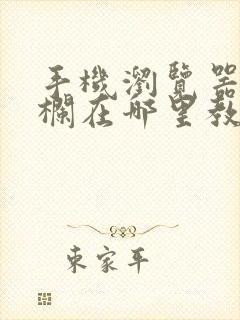 手機瀏覽器
欄在哪里教
東家平